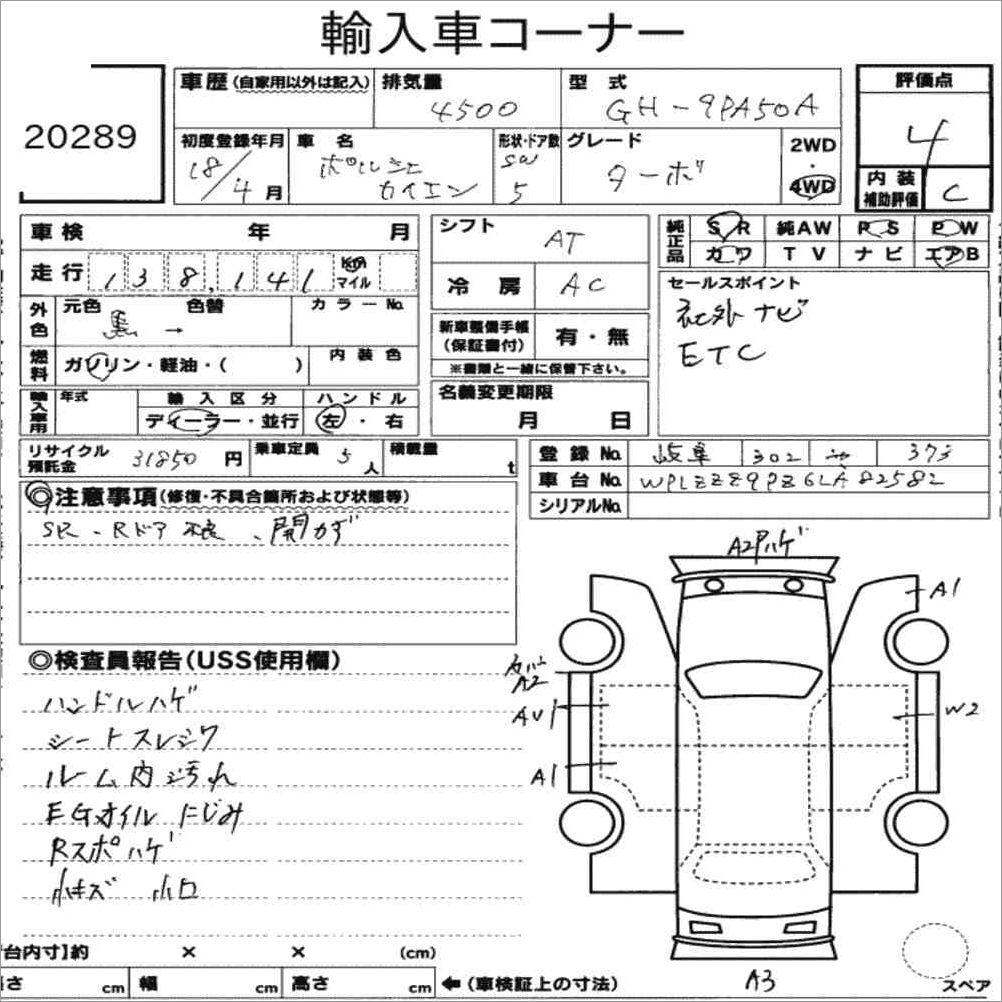 輸入車コーナー
20289
車歴(自家用以外は記入)
排気量
4500
型 式
GH-9PA50A
評価点
4
初度登録年月
18/4月
車 名
ポルシェ
カイエン
形状・ドア数
SW
5
グレード
ターボ
2WD
・
4WD
内 装
補助評価
C
車検 年 月
走行 138,141 Km
マイル
シフト AT
冷 房 AC
純正品
S R 純AW P S P W
カワ T V ナ ビ エアB
セールスポイント
社外 ナビ
ETC
外色
元色 色替 カラーNo.
黒 →
燃料
ガソリン・軽油・( )
内 装 色
新車整備手帳
(保証書付)
有・無
※書類と一緒に保管下さい。
輸入車用
年式
輸 入 区 分
ディーラー・並行
ハ ン ド ル
左・右
名義変更期限
月 日
リサイクル
預託金
31850 円
乗車定員 5 人
積載量 t
登 録 No. 岐阜 302
車 台 No. WPLZZZ9PZ6LA82582
シリアルNo.
◎注意事項(修復・不具合箇所および状態等)
SR、Rドア 不良、開かず
◎検査員報告(USS使用欄)
ハンドルハゲ
シートスレシワ
ルーム内汚れ
EGオイルにじみ
Rスポハゲ
小キズ 小凹
A2 ハゲ
A1
A2
AU1
W2
A1
A3
台内寸】約 × × (cm)
さ cm 幅 cm 高さ cm ←(車検証上の寸法)
スペア